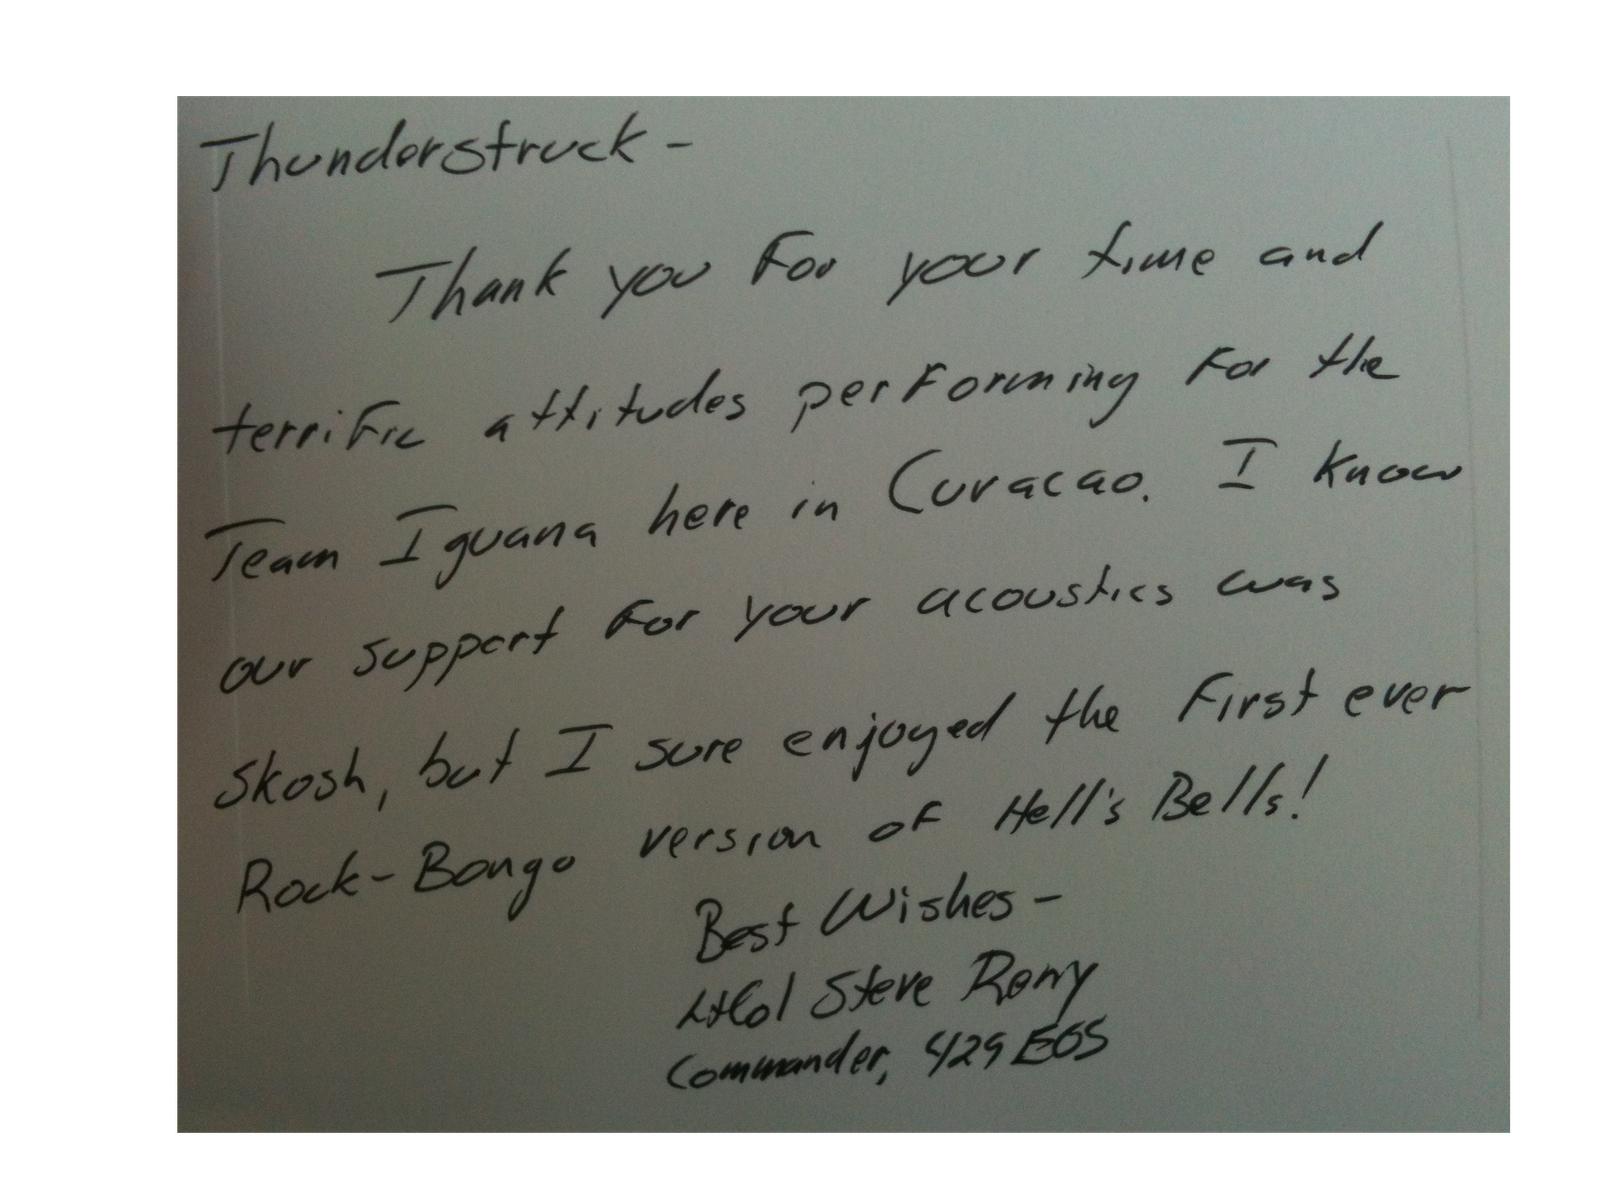 Thunderstruck -
Thank you For your time and
terriFic attitudes perForming For the
Team Iguana here in Curacao. I know
our support For your acoustics was
skosh, but I sure enjoyed the First ever
Rock-Bongo version oF Hell's Bells!
Best Wishes -
LtCol Steve
Commander, 429 EOS